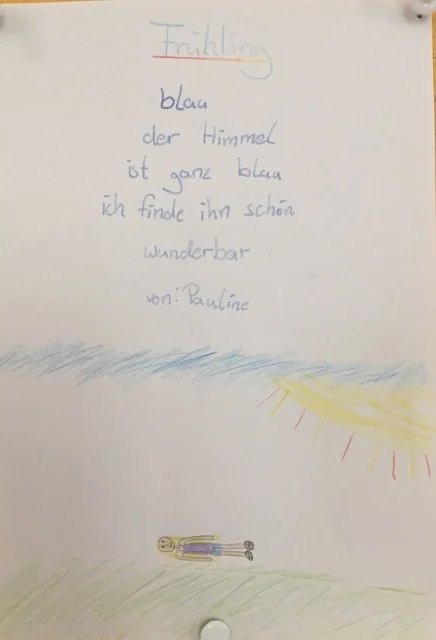 Frühling
blau
der Himmel
ist ganz blau
ich finde ihn schön
wunderbar
von: Pauline